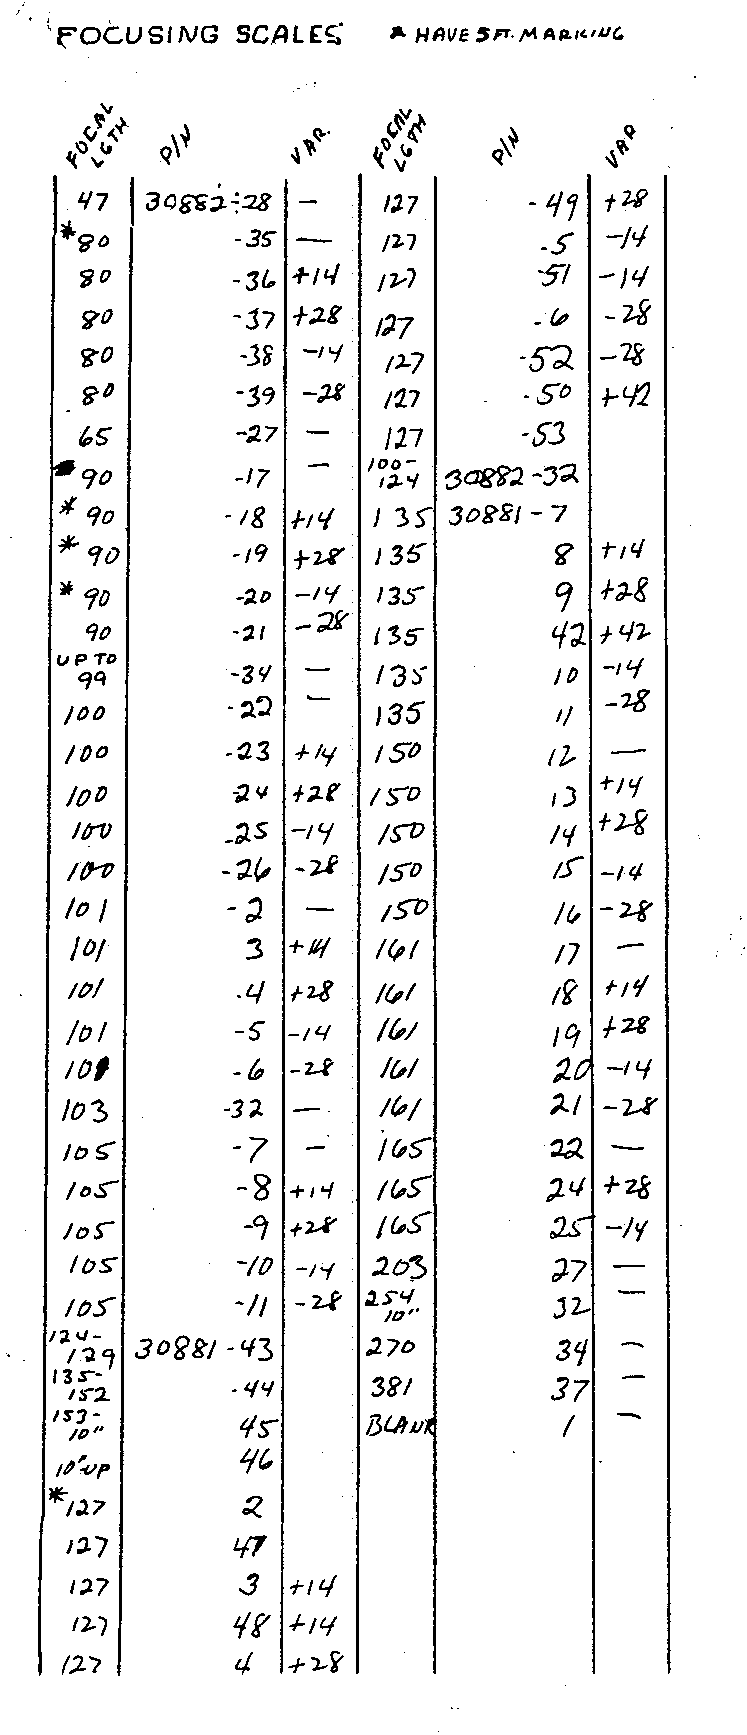 FOCUSING SCALES * HAVE 5 FT. MARKING
FOCAL LGTH P/N VAR. FOCAL LGTH P/N VAR
47 30882-28 — 127 -49 +28
*80 -35 — 127 -5 -14
80 -36 +14 127 -51 -14
80 -37 +28 127 -6 -28
80 -38 -14 127 -52 -28
80 -39 -28 127 -50 +42
65 -27 — 127 -53
*90 -17 — 100-124 30882-32
*90 -18 +14 135 30881-7
*90 -19 +28 135 8 +14
*90 -20 -14 135 9 +28
90 -21 -28 135 42 +42
UP TO 99 -34 — 135 10 -14
100 -22 — 135 11 -28
100 -23 +14 150 12 —
100 24 +28 150 13 +14
100 -25 -14 150 14 +28
100 -26 -28 150 15 -14
101 -2 — 150 16 -28
101 3 +14 161 17 —
101 -4 +28 161 18 +14
101 -5 -14 161 19 +28
101 -6 -28 161 20 -14
103 -32 — 161 21 -28
105 -7 — 165 22 —
105 -8 +14 165 24 +28
105 -9 +28 165 25 -14
105 -10 -14 203 27 —
105 -11 -28 254 10" 32 —
124-129 30881-43 270 34 —
135-152 -44 381 37 —
153-10" 45 BLANK 1 —
10"UP 46
*127 2
127 47
127 3 +14
127 48 +14
127 4 +28